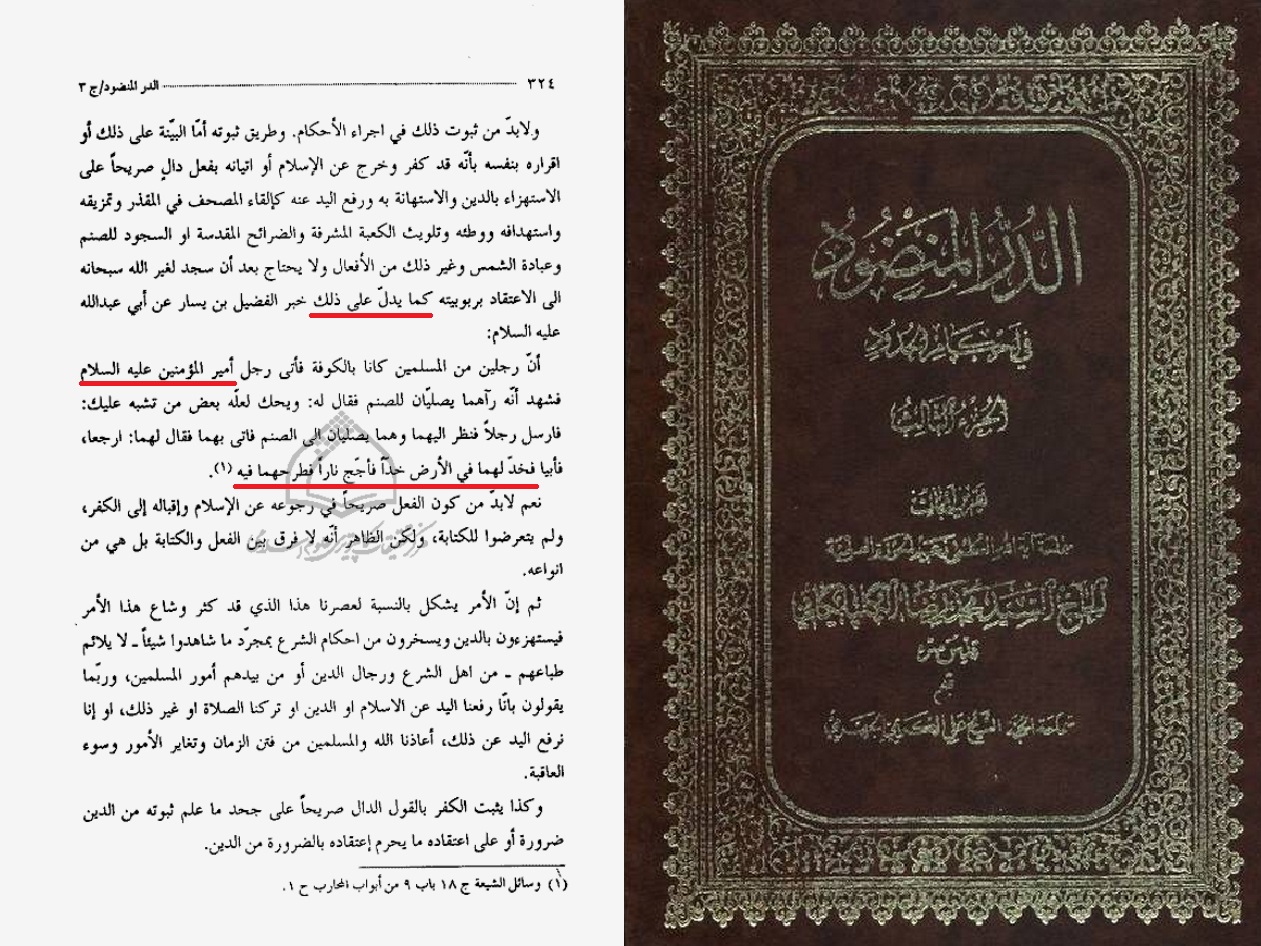 ٣٢٤ ........ الدر المنضود/ج ٣
ولابدّ من ثبوت ذلك في اجراء الأحكام. وطريق ثبوته أمّا البيّنة على ذلك أو
اقراره بنفسه بأنّه قد كفر وخرج عن الإسلام أو اتيانه بفعل دالٍ صريحاً على
الاستهزاء بالدين والاستهانة به ورفع اليد عنه كإلقاء المصحف في المقذر وتمزيقه
واستهدافه ووطئه وتلويث الكعبة المشرفة والضرائح المقدسة او السجود للصنم
وعبادة الشمس وغير ذلك من الأفعال ولا يحتاج بعد أن سجد لغير الله سبحانه
الى الاعتقاد بربوبيته كما يدلّ على ذلك خبر الفضيل بن يسار عن أبي عبدالله
عليه السلام:
أنّ رجلين من المسلمين كانا بالكوفة فأتى رجل أمير المؤمنين عليه السلام
فشهد أنّه رآهما يصليّان للصنم فقال له: ويحك لعلّه بعض من تشبه عليك:
فارسل رجلاً فنظر اليهما وهما يصليان الى الصنم فاتى بهما فقال لهما: ارجعا،
فأبيا فخدّ لهما في الأرض خدّاً فأجّج ناراً فطرحهما فيه (١).
نعم لابدّ من كون الفعل صريحاً في رجوعه عن الإسلام وإقباله إلى الكفر،
ولم يتعرضوا للكتابة، ولكن الظاهر أنّه لا فرق بين الفعل والكتابة بل هي من
انواعه.
ثم إنّ الأمر يشكل بالنسبة لعصرنا هذا الذي قد كثر وشاع هذا الأمر
فيستهزءون بالدين ويسخرون من احكام الشرع بمجرّد ما شاهدوا شيئاً ـ لا يلائم
طباعهم ـ من اهل الشرع ورجال الدين أو من بيدهم أمور المسلمين، وربّما
يقولون بانّا رفعنا اليد عن الاسلام او الدين او تركنا الصلاة او غير ذلك، او إنا
نرفع اليد عن ذلك، أعاذنا الله والمسلمين من فتن الزمان وتغاير الأمور وسوء
العاقبة.
وكذا يثبت الكفر بالقول الدال صريحاً على جحد ما علم ثبوته من الدين
ضرورة أو على اعتقاده ما يحرم إعتقاده بالضرورة من الدين.
(١) وسائل الشيعة ج ١٨ باب ٩ من أبواب المحارب ح ١.
الدر المنضود
في أحكام الحدود
الجزء الثالث